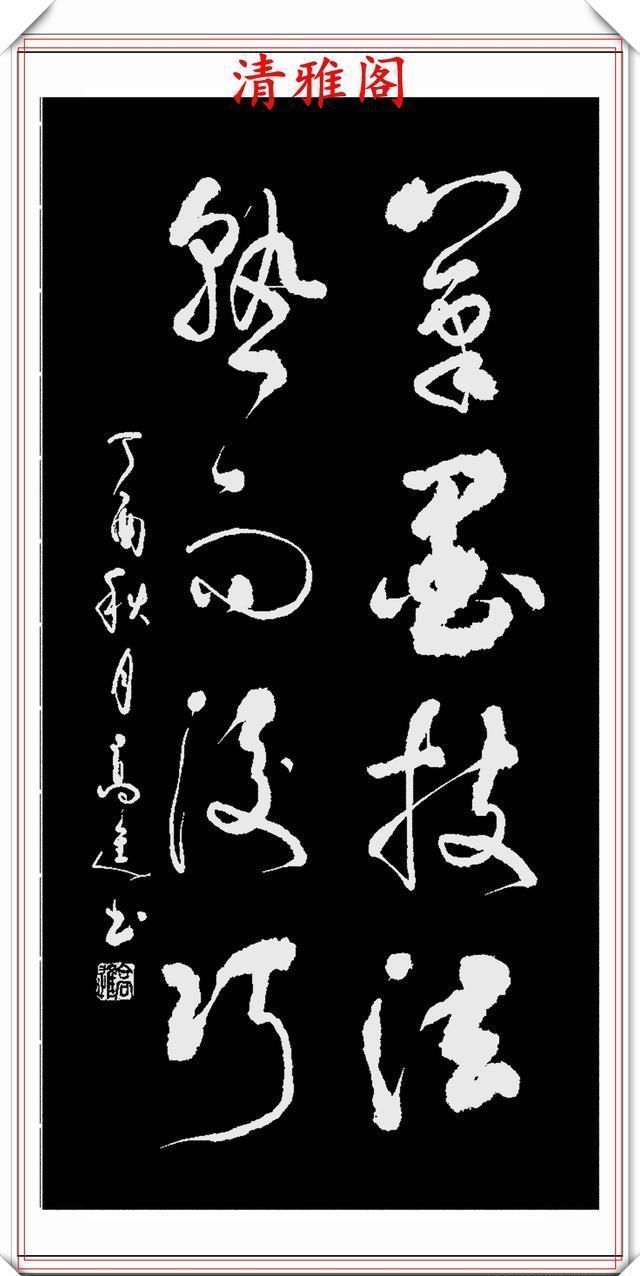 清雅阁
笔墨技法
熟而后巧
丁酉秋月高進书